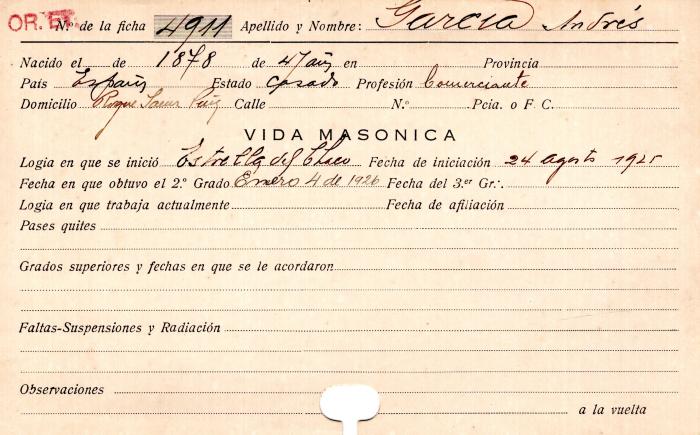 OR. ET. N.º de la ficha 4911 Apellido y Nombre: García Andrés
Nacido el de 1878 de 47 años en Provincia
País España Estado Casado Profesión Comerciante
Domicilio Roque Saenz Calle N.º Pcia. o F. C.
VIDA MASONICA
Logia en que se inició Estrella del Chaco Fecha de iniciación 24 agosto 1925
Fecha en que obtuvo el 2.º Grado Enero 4 de 1926 Fecha del 3.er Gr∴
Logia en que trabaja actualmente Fecha de afiliación
Pases quites
Grados superiores y fechas en que se le acordaron
Faltas-Suspensiones y Radiación
Observaciones
a la vuelta